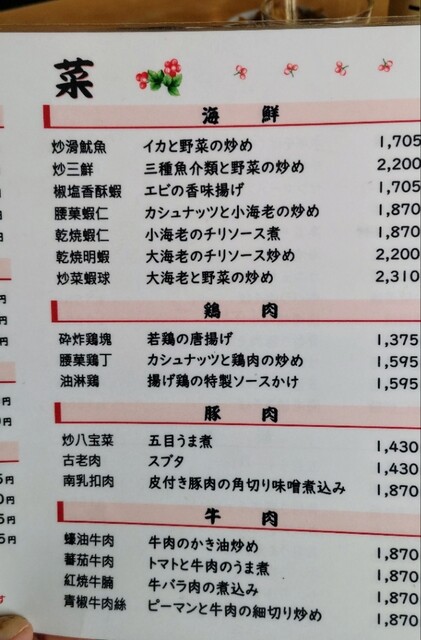 菜
海鮮
炒滑魷魚 イカと野菜の炒め 1,705
炒三鮮 三種魚介類と野菜の炒め 2,200
椒塩香酥蝦 エビの香味揚げ 1,705
腰菓蝦仁 カシュナッツと小海老の炒め 1,870
乾焼蝦仁 小海老のチリソース煮 1,870
乾焼明蝦 大海老のチリソース炒め 2,200
炒菜蝦球 大海老と野菜の炒め 2,310
鶏肉
砕炸鶏塊 若鶏の唐揚げ 1,375
腰菓鶏丁 カシュナッツと鶏肉の炒め 1,595
油淋鶏 揚げ鶏の特製ソースかけ 1,595
豚肉
炒八宝菜 五目うま煮 1,430
古老肉 スブタ 1,430
南乳扣肉 皮付き豚肉の角切り味噌煮込み 1,870
牛肉
蠔油牛肉 牛肉のかき油炒め 1,870
蕃茄牛肉 トマトと牛肉のうま煮 1,870
紅焼牛腩 牛バラ肉の煮込み 1,870
青椒牛肉絲 ピーマンと牛肉の細切り炒め 1,870